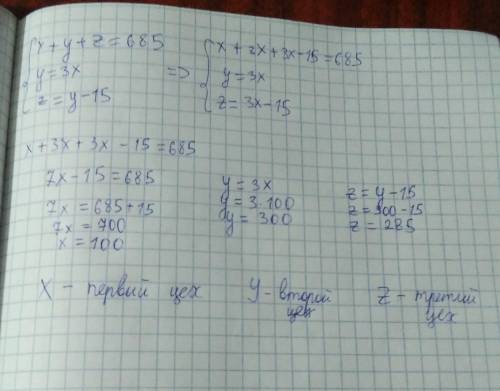 x + y + z = 685
y = 3x
z = y - 15
=>
x + 3x + 3x - 15 = 685
y = 3x
z = 3x - 15
x + 3x + 3x - 15 = 685
7x - 15 = 685
7x = 685 + 15
7x = 700
x = 100
y = 3x
y = 3 · 100
y = 300
z = y - 15
z = 300 - 15
z = 285
X - первый цех
Y - второй цех
Z - третий цех